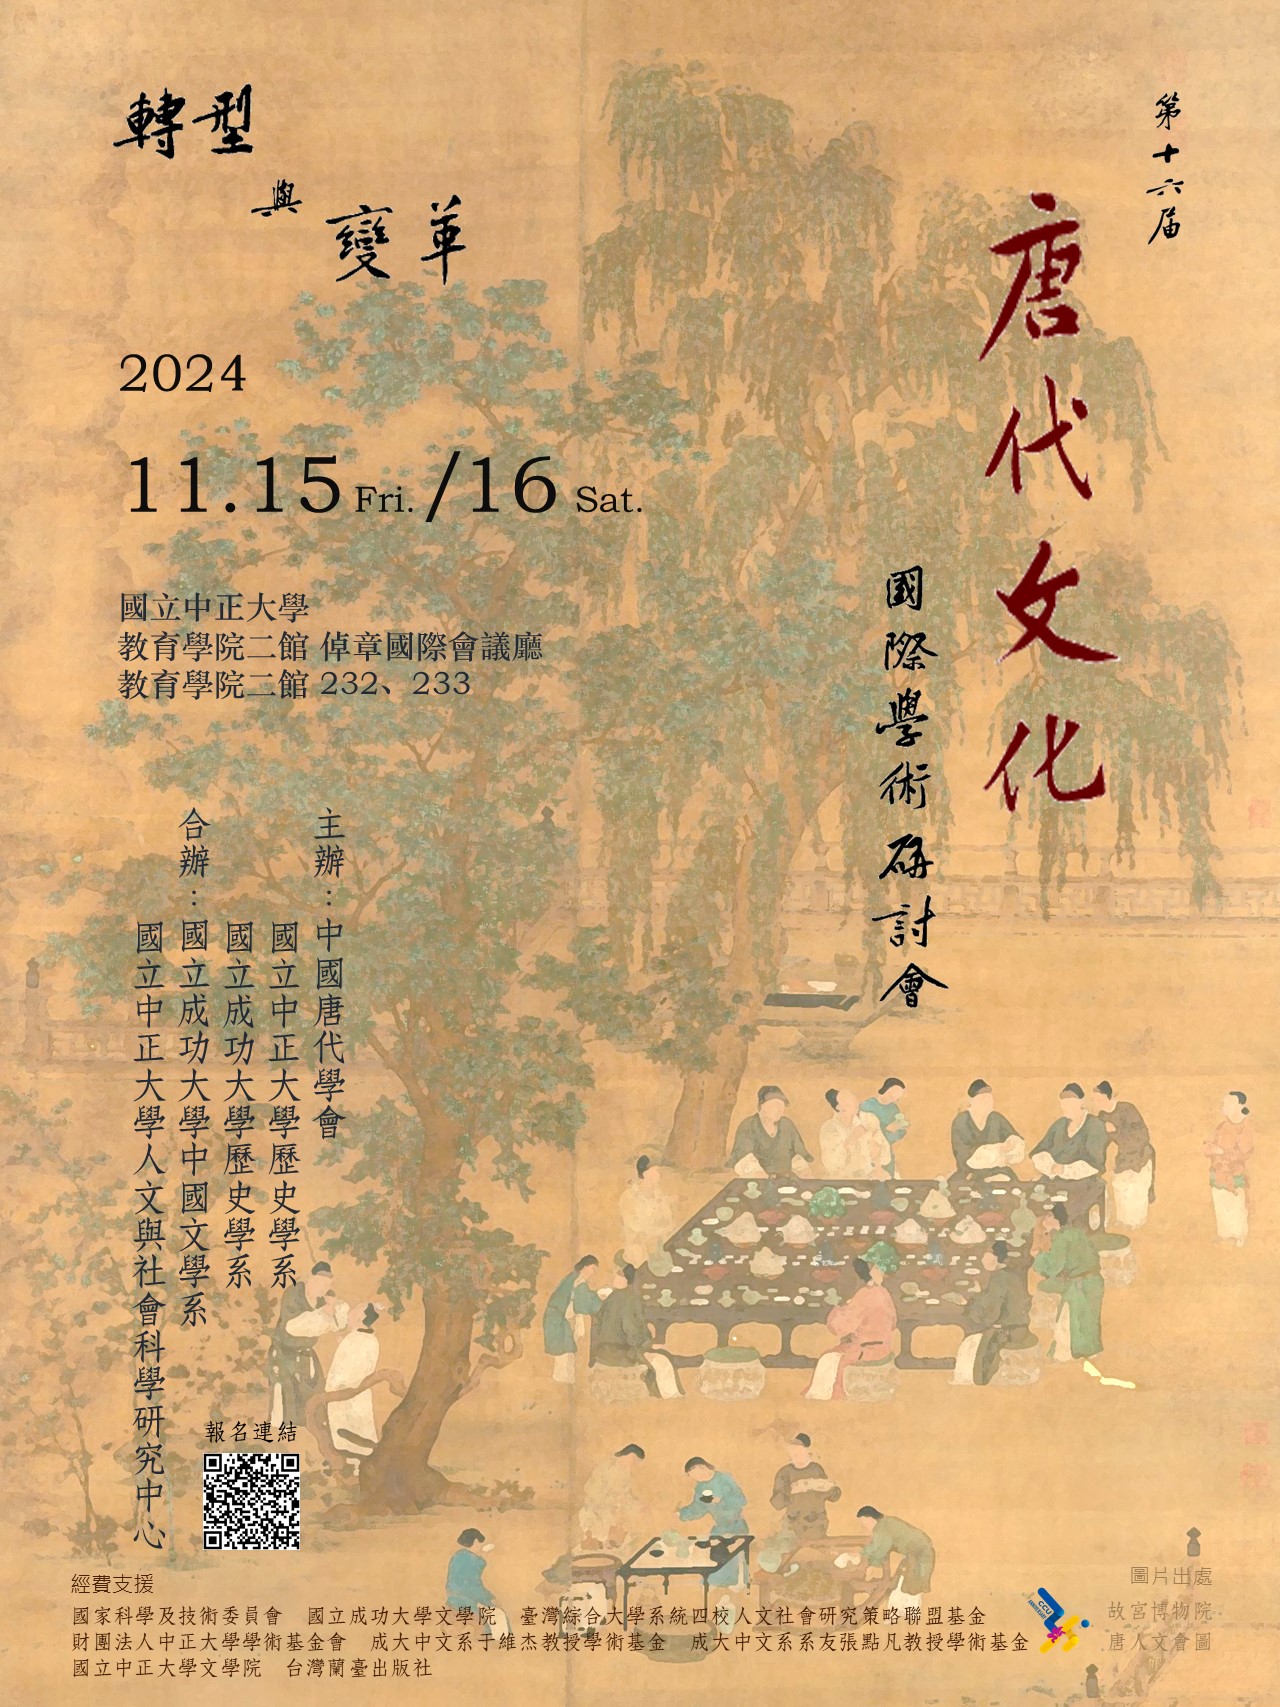 第十六屆
唐代文化
國際學術研討會
轉型
與
變革
2024
11.15 Fri. /16 Sat.
國立中正大學
教育學院二館 倬章國際會議廳
教育學院二館 232、233
主辦：中國唐代學會
國立中正大學歷史學系
國立成功大學歷史學系
合辦：國立成功大學中國文學系
國立中正大學人文與社會科學研究中心
報名連結
經費支援
國家科學及技術委員會 國立成功大學文學院 臺灣綜合大學系統四校人文社會研究策略聯盟基金
財團法人中正大學學術基金會 成大中文系于維杰教授學術基金 成大中文系系友張點凡教授學術基金
國立中正大學文學院 台灣蘭臺出版社
CCU
圖片出處
故宮博物院
唐人文會圖